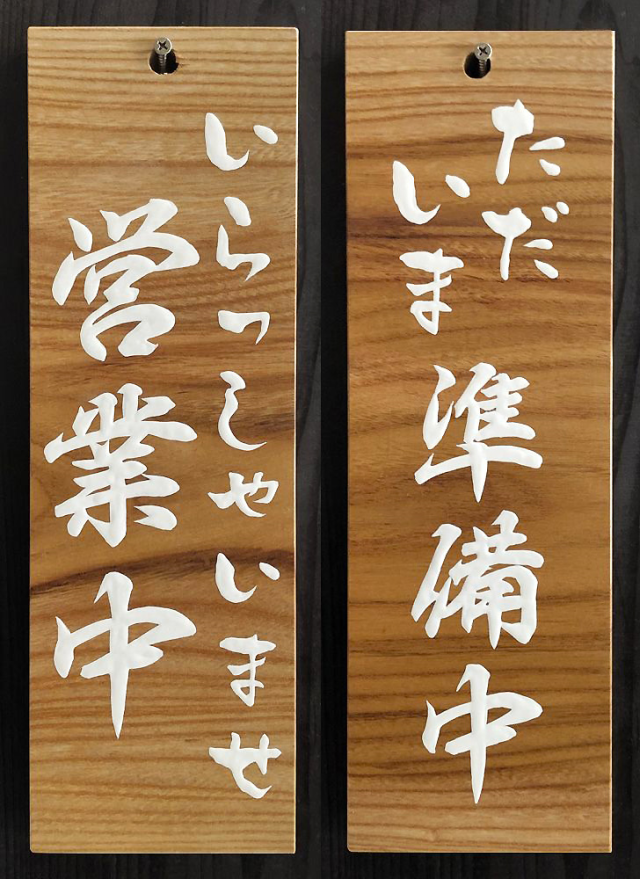 いらっしゃいませ
営業中
ただ
いま
準備中